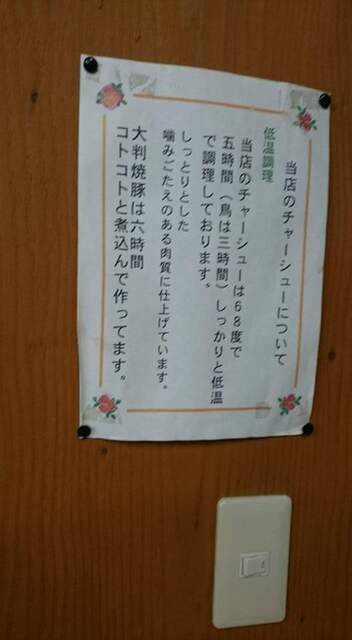 当店のチャーシューについて
低温調理
当店のチャーシューは68度で
五時間（鳥は三時間）しっかりと低温
で調理しております。
しっとりとした
噛みごたえのある肉質に仕上げています。
大判焼豚は六時間
コトコトと煮込んで作ってます。